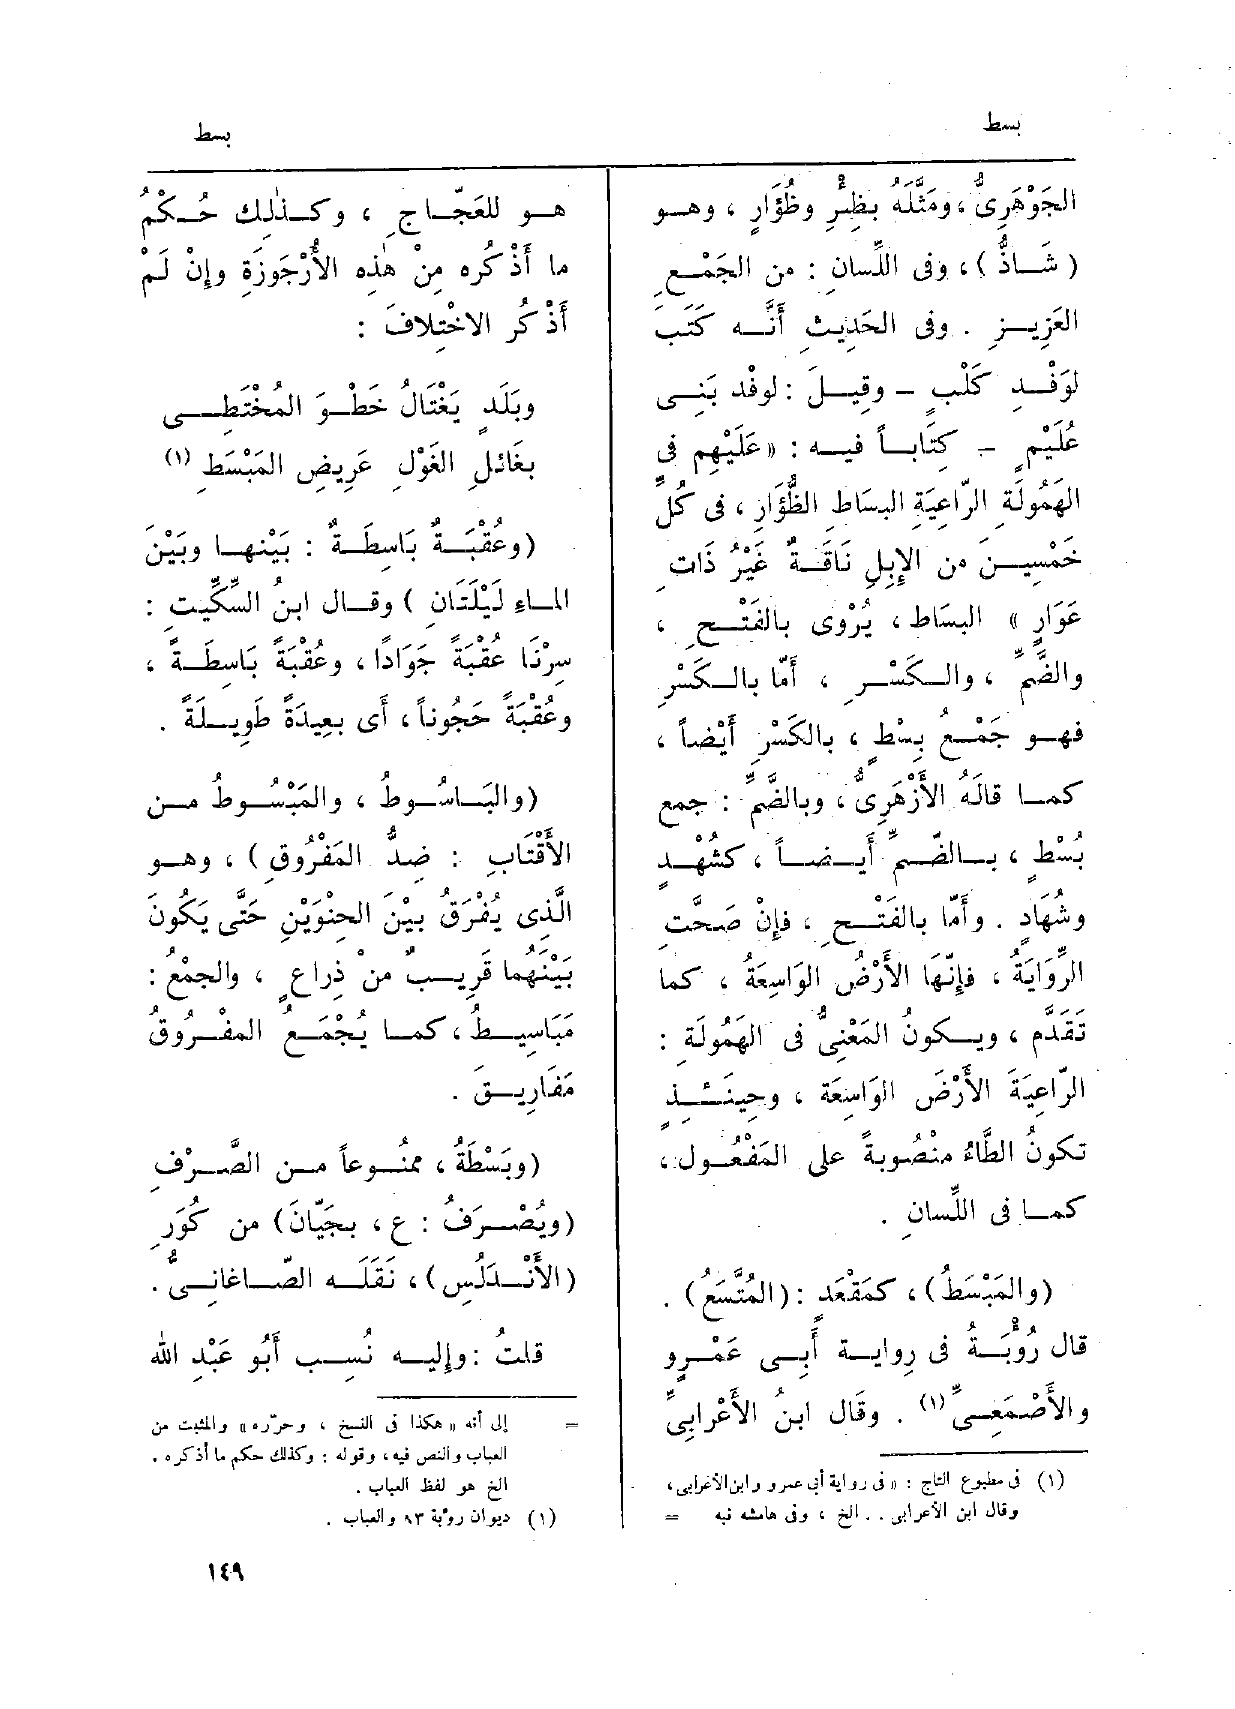 بسط
بسط
الجَوْهَرِىُّ ، ومَثَّلَهُ بظِئْرٍ وظُؤَارٍ ، وهــو
( شَــاذٌّ ) ، وفى اللِّسانِ : من الجَمْـعِ
العَزِيــزِ . وفى الحَدِيثِ أَنَّــه كَتَبَ
لوَفْــدِ كَلْبٍ – وقِيــلَ : لوفْد بَنِــى
عُلَيْمٍ – كِتَابــاً فيــه : « عَلَيْهِم فى
الهَمُولَةِ الرّاعِيَةِ البساَطِ الظُّؤَارِ ، فى كُلِّ
خَمْسِيــنَ من الإِبِلِ نَاقَــةٌ غَيْرُ ذَاتِ
عَوَارٍ » البسَاط ، يُرْوى بالفَتْــحِ ،
والضَّمِّ ، والــكَسْــرِ ، أَمّا بالــكَسْرِ
فهــو جَمْــعُ بِسْطٍ ، بالكَسْرِ أَيْضاً ،
كمــا قالَهُ الأَزْهَرِىُّ ، وبالضَّمِّ : جمع
بُسْطٍ ، بــالضَّــمِّ أَيــضــاً ، كشُهْــدٍ
وشُهَادٍ . وأَمّا بالفَتْــحِ ، فإِنْ صَحَّتِ
الرِّوَايَةُ ، فإِنَّهَا الأَرْضُ الوَاسِعَةُ ، كما
تَقَدَّم ، ويــكونُ المَعْنِىُّ فى الهَمُولَةِ :
الرّاعِيَةَ الأَرْضَ الوَاسِعَة ، وحِينَئِــذٍ
تكونُ الطَّاءُ منْصُوبةً على المَفْعُول ،
كمــا فى اللِّسانِ .
(والمَبْسَطُ) ، كمَقْعَدٍ : (المُتَّسَعُ) .
قال رُؤْبَــةُ فى رِوايــة أَبِــى عَمْــرٍو
والأَصْمَعِــىِّ (١) . وقَال ابنُ الأَعْرابىِّ
(١) فى مطبوع التاج : « فى رواية أبى عمرو وابن الأعرابى ،
وقال ابن الأعرابى . . الخ ، وفى هامشه نبه =
هــو للعَجّــاجِ ، وكــذٰلِك حُــكْمُ
ما أَذْكُره مِنْ هٰذِه الأُرْجُوزَةِ وإِنْ لَمْ
أَذْكُر الاخْتِلافَ :
وبَلَدٍ يَغْتَالُ خَطْــوَ المُخْتَطِــى
بغَائلِ الغَوْلِ عَرِيضِ المَبْسَطِ (١)
(وعُقْبَــةٌ بَاسِطَــةٌ : بَيْنهــا وبَيْنَ
المــاءِ لَيْلَتَانِ ) وقــال ابنُ السِّكِّيتِ :
سِرْنَا عُقْبَةً جَوَادًا ، وعُقْبَةً بَاسِطَــةً ،
وعُقْبَةً حَجُوناً ، أَى بعِيدَةً طَوِيــلَةً .
(والبَــاسُــوطُ ، والمَبْسُــوطُ مــن
الأَقْتَابِ : ضِدُّ المَفْرُوقِ ) ، وهــو
الَّذِى يُفْرَقُ بيْنَ الحِنْوَيْنِ حَتَّى يَكُونَ
بَيْنَهُمَا قَرِيــبٌ منْ ذِراعٍ ، والجمْعُ :
مَبَاسِيــطُ ، كمــا يُجْمَــعُ المفْــرُوقُ
مَفَارِيــقَ .
(وبَسْطَةُ ، ممْنُــوعاً مــن الصَّــرْفِ
(ويُصْــرَفُ : ع ، بجَيّانَ) من كُوَرِ
(الأَنْــدَلُسِ) ، نَقَلَــه الصّــاغانِــىُّ .
قلتُ : وإِليــه نُسِــب أَبُو عَبْدِ الله
= إلى أنه « هكذا فى النسخ ، وحرّره » والمثبت من
العباب والنص فيه ، وقوله : وكذلك حكم ما أذكره .
الخ هو لفظ العباب .
(١) ديوان رؤبة ٨٣ والعباب .
١٤٩